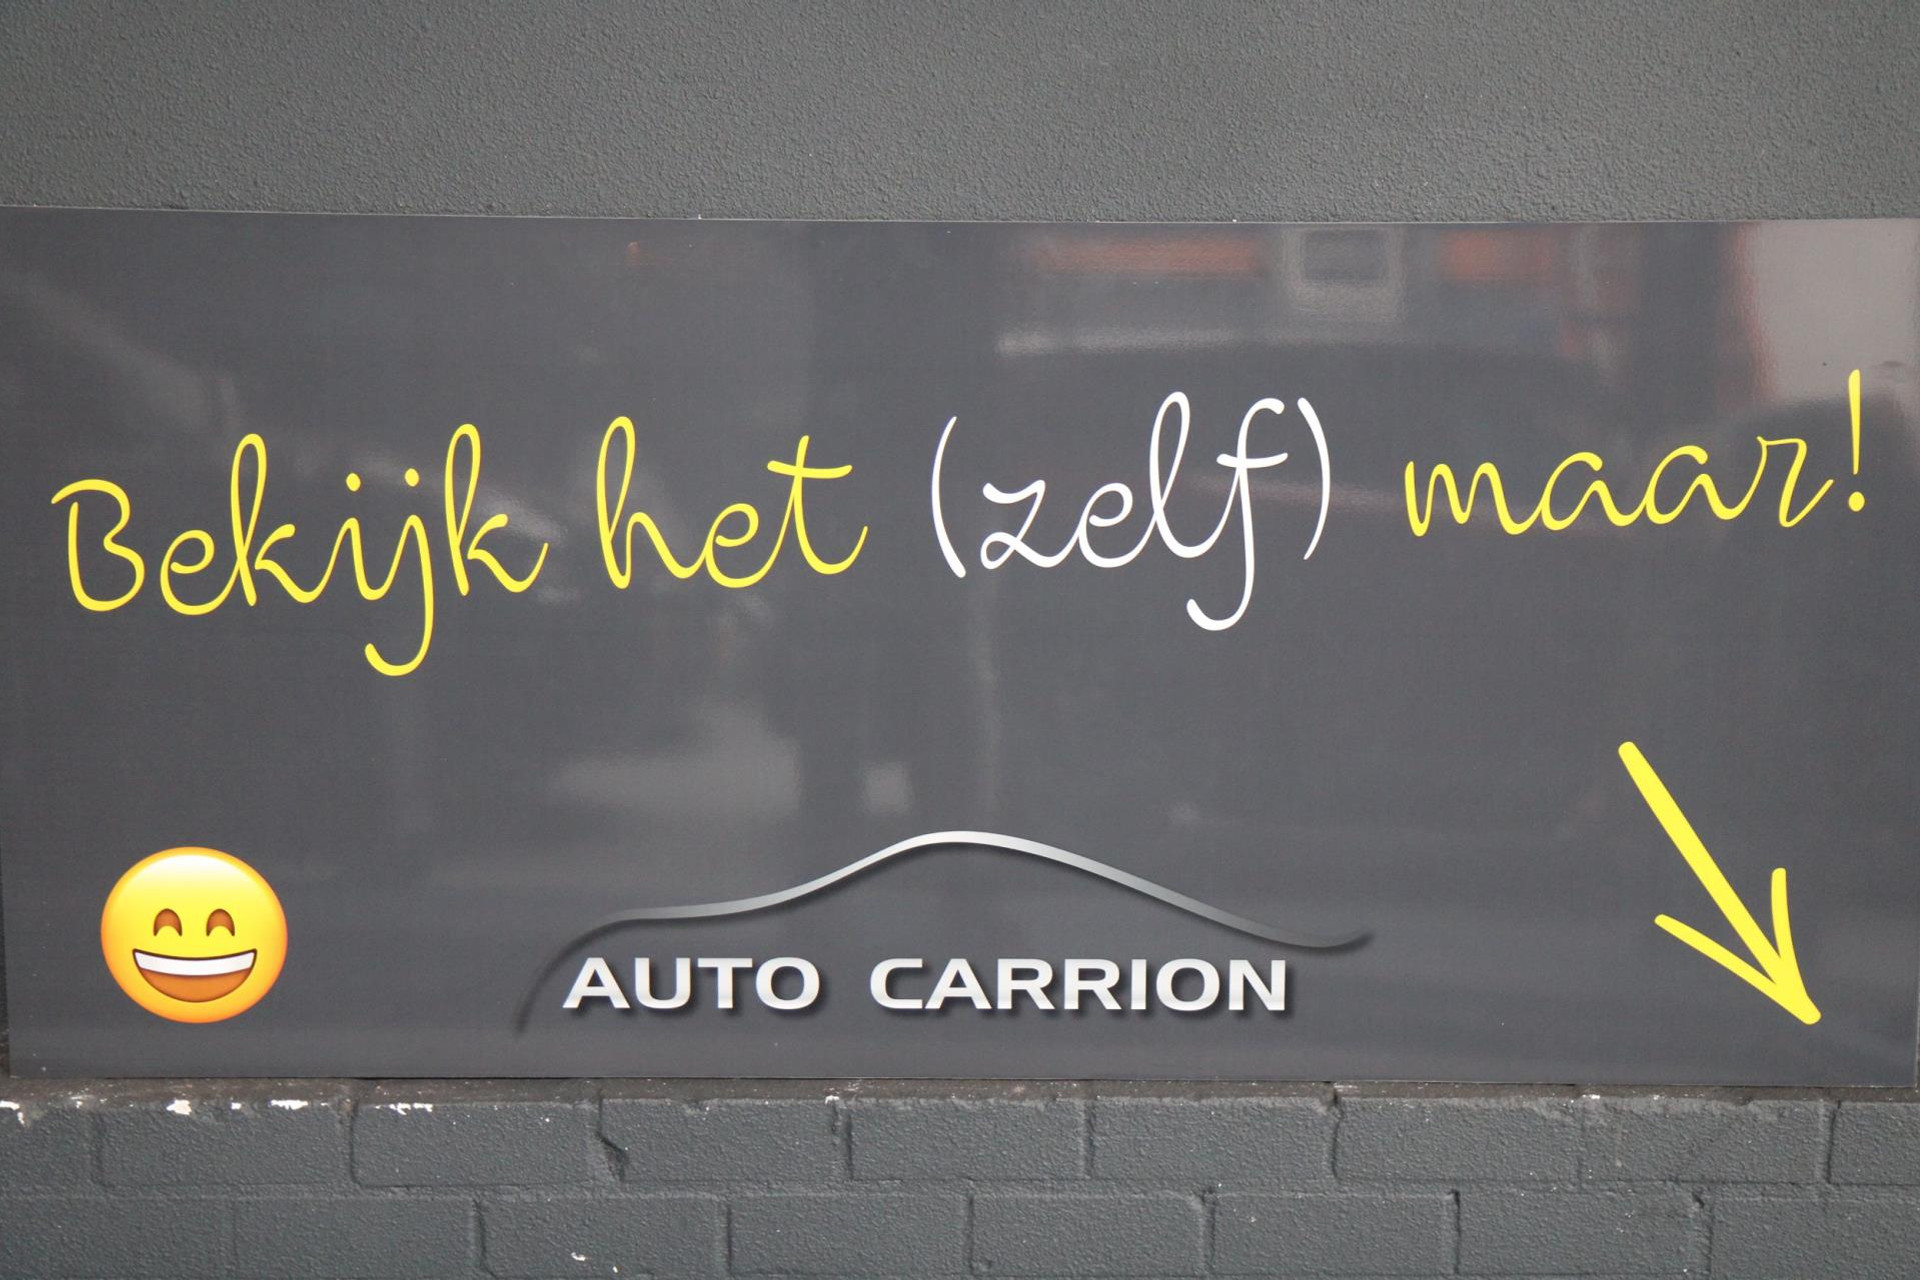 Bekijk het (zelf) maar!
AUTO CARRION